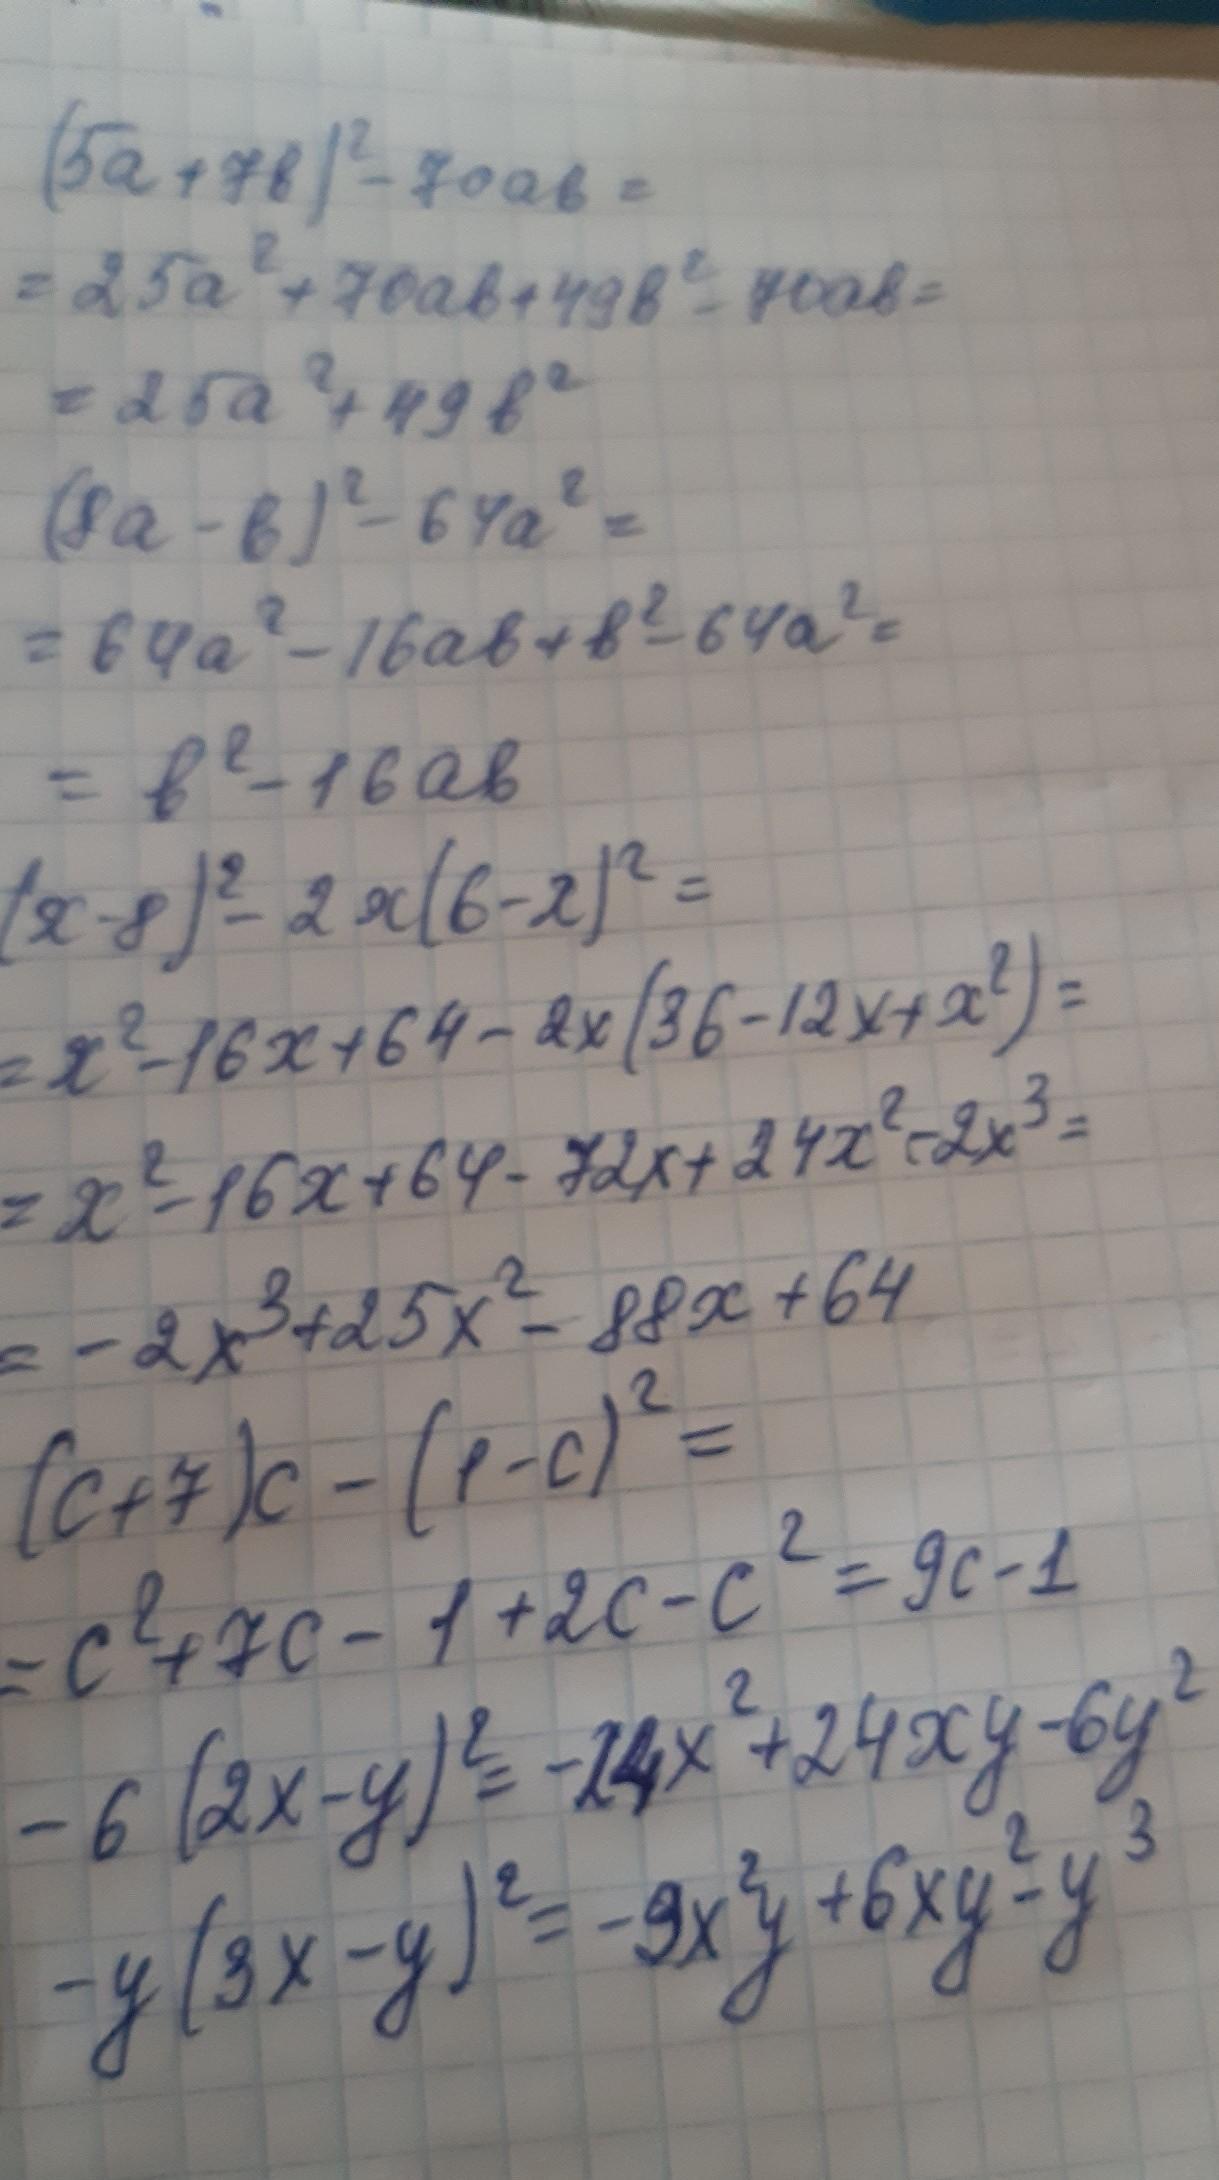 (5a + 7b)² - 70ab =
= 25a² + 70ab + 49b² - 70ab =
= 25a² + 49b²
(8a - b)² - 64a² =
= 64a² - 16ab + b² - 64a² =
= b² - 16ab
(x - 8)² - 2x(6 - x)² =
= x² - 16x + 64 - 2x(36 - 12x + x²) =
= x² - 16x + 64 - 72x + 24x² - 2x³ =
= -2x³ + 25x² - 88x + 64
(c + 7)c - (1 - c)² =
= c² + 7c - 1 + 2c - c² = 9c - 1
-6(2x - y)² = -24x² + 24xy - 6y²
-y(3x - y)² = -9x²y + 6xy² - y³